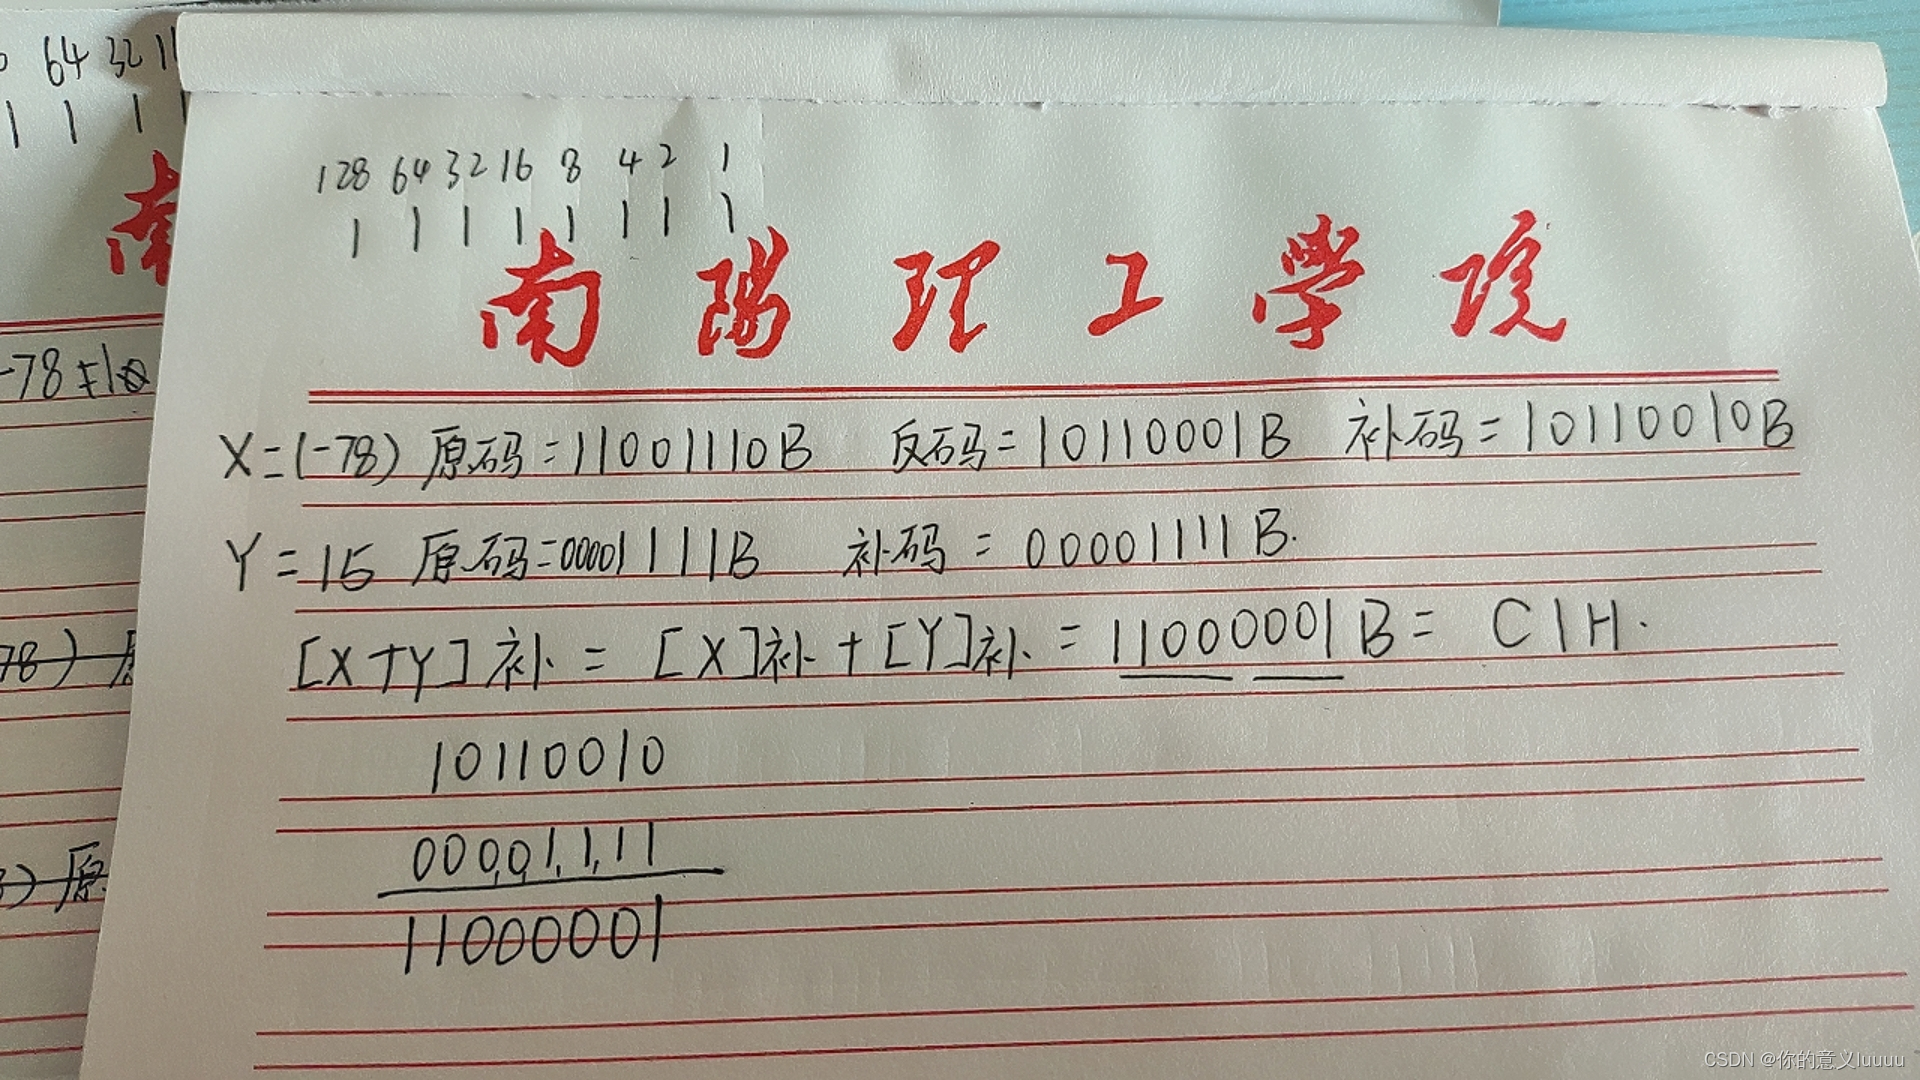 64 32 1
1 1 1 1
128 64 32 16 8 4 2 1
1 1 1 1 1 1 1 1
南
南陽理工學院
-78
X=(-78) 原码=11001110B 反码=10110001B 补码=10110010B
Y=15 原码=00001111B 补码=00001111B.
78) 原
[X+Y]补=[X]补+[Y]补=11000001B=C1H.
10110010
00001111
) 原
11000001
CSDN @你的意义luuuu